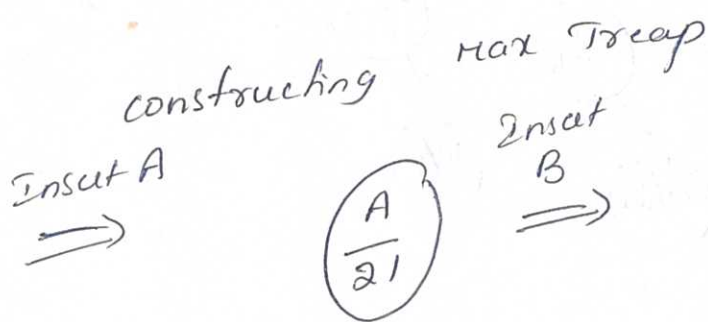 constructing Max Treap
Insert A
Insert
B
A
21